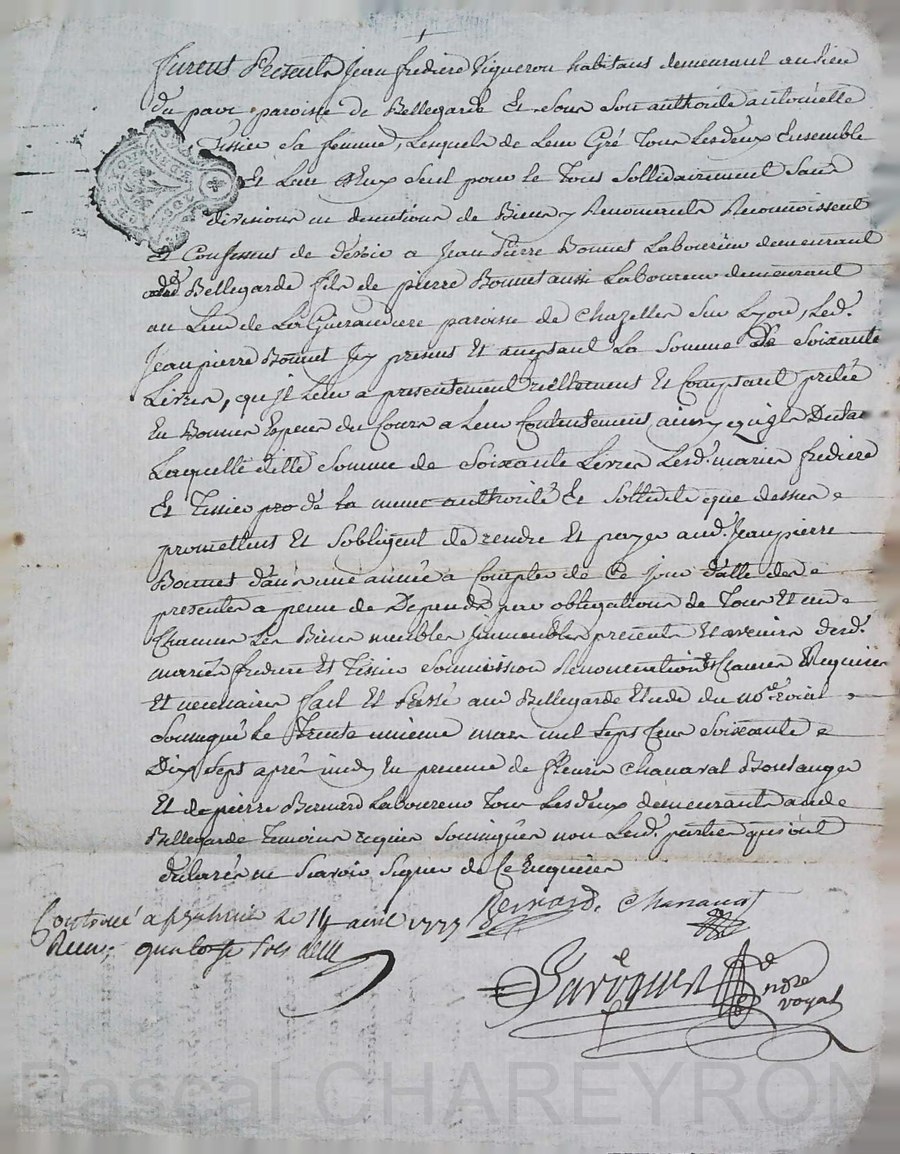 furent Presents Jean frediere Vigneron habitans demeurant au lieu
du pavé paroisse de Bellegarde Et sous Son authorité antoinette
Tissier sa femme, Lesquels de Leur Gré Tous Les deux Ensemble
Et L'un D'Eux Seul pour le Tous Sollidairement Sans
division ni de Biens y Renonceants Reconnoissent
Et Confessent de devoir a Jean Pierre Bonnet Laboureur demeurant
Bellegarde fils de pierre Bonnet aussi Laboureur demeurant
au Lieu de La paroisse de Chazelles Sur Lyon, Led.
Jean pierre Bonnet Icy present Et acceptant La Somme de Soixante
Livres, qu'il Leur a presentement reellement Et Comptant pretée
En Bonnes Especes du Cours a Leur Contentement, ainsy qu'ils
Laquelle ditte Somme de Soixante Livres Lesd. mariés fredière
Et Tissier de la meme authorité Et Sollidité que dessus
promettent Et S'obligent de rendre Et payer aud. Jean pierre
Bonnet dans une année a Compter de Ce jour datte des
presentes a peine de Depends par obligation de Tous Et un
Chacuns Les Biens meubles Immeubles presents Et avenirs desd.
mariés fredière Et Tissier Soumission Renonciation Et Clauses Requises
Et necessaires fait Et Passé aud Bellegarde Etude du no.re royal
Soussigné Le Trente unieme mars mil Sept Cens Soixante
Dix Sept après midy En presence de fleurie Chanavat Boulanger
Et de pierre Bernard Laboureur Tous Les deux demeurants aud
Bellegarde Temoins requis Soussignés non Lesd. parties qui ont
déclarés ne Scavoir Signer de Ce Enquises
Bernard. Chanavat
Controlé a le 14 avril 1777
Reçu, quatorze sols
no.re
royal
Pascal CHAREYRON